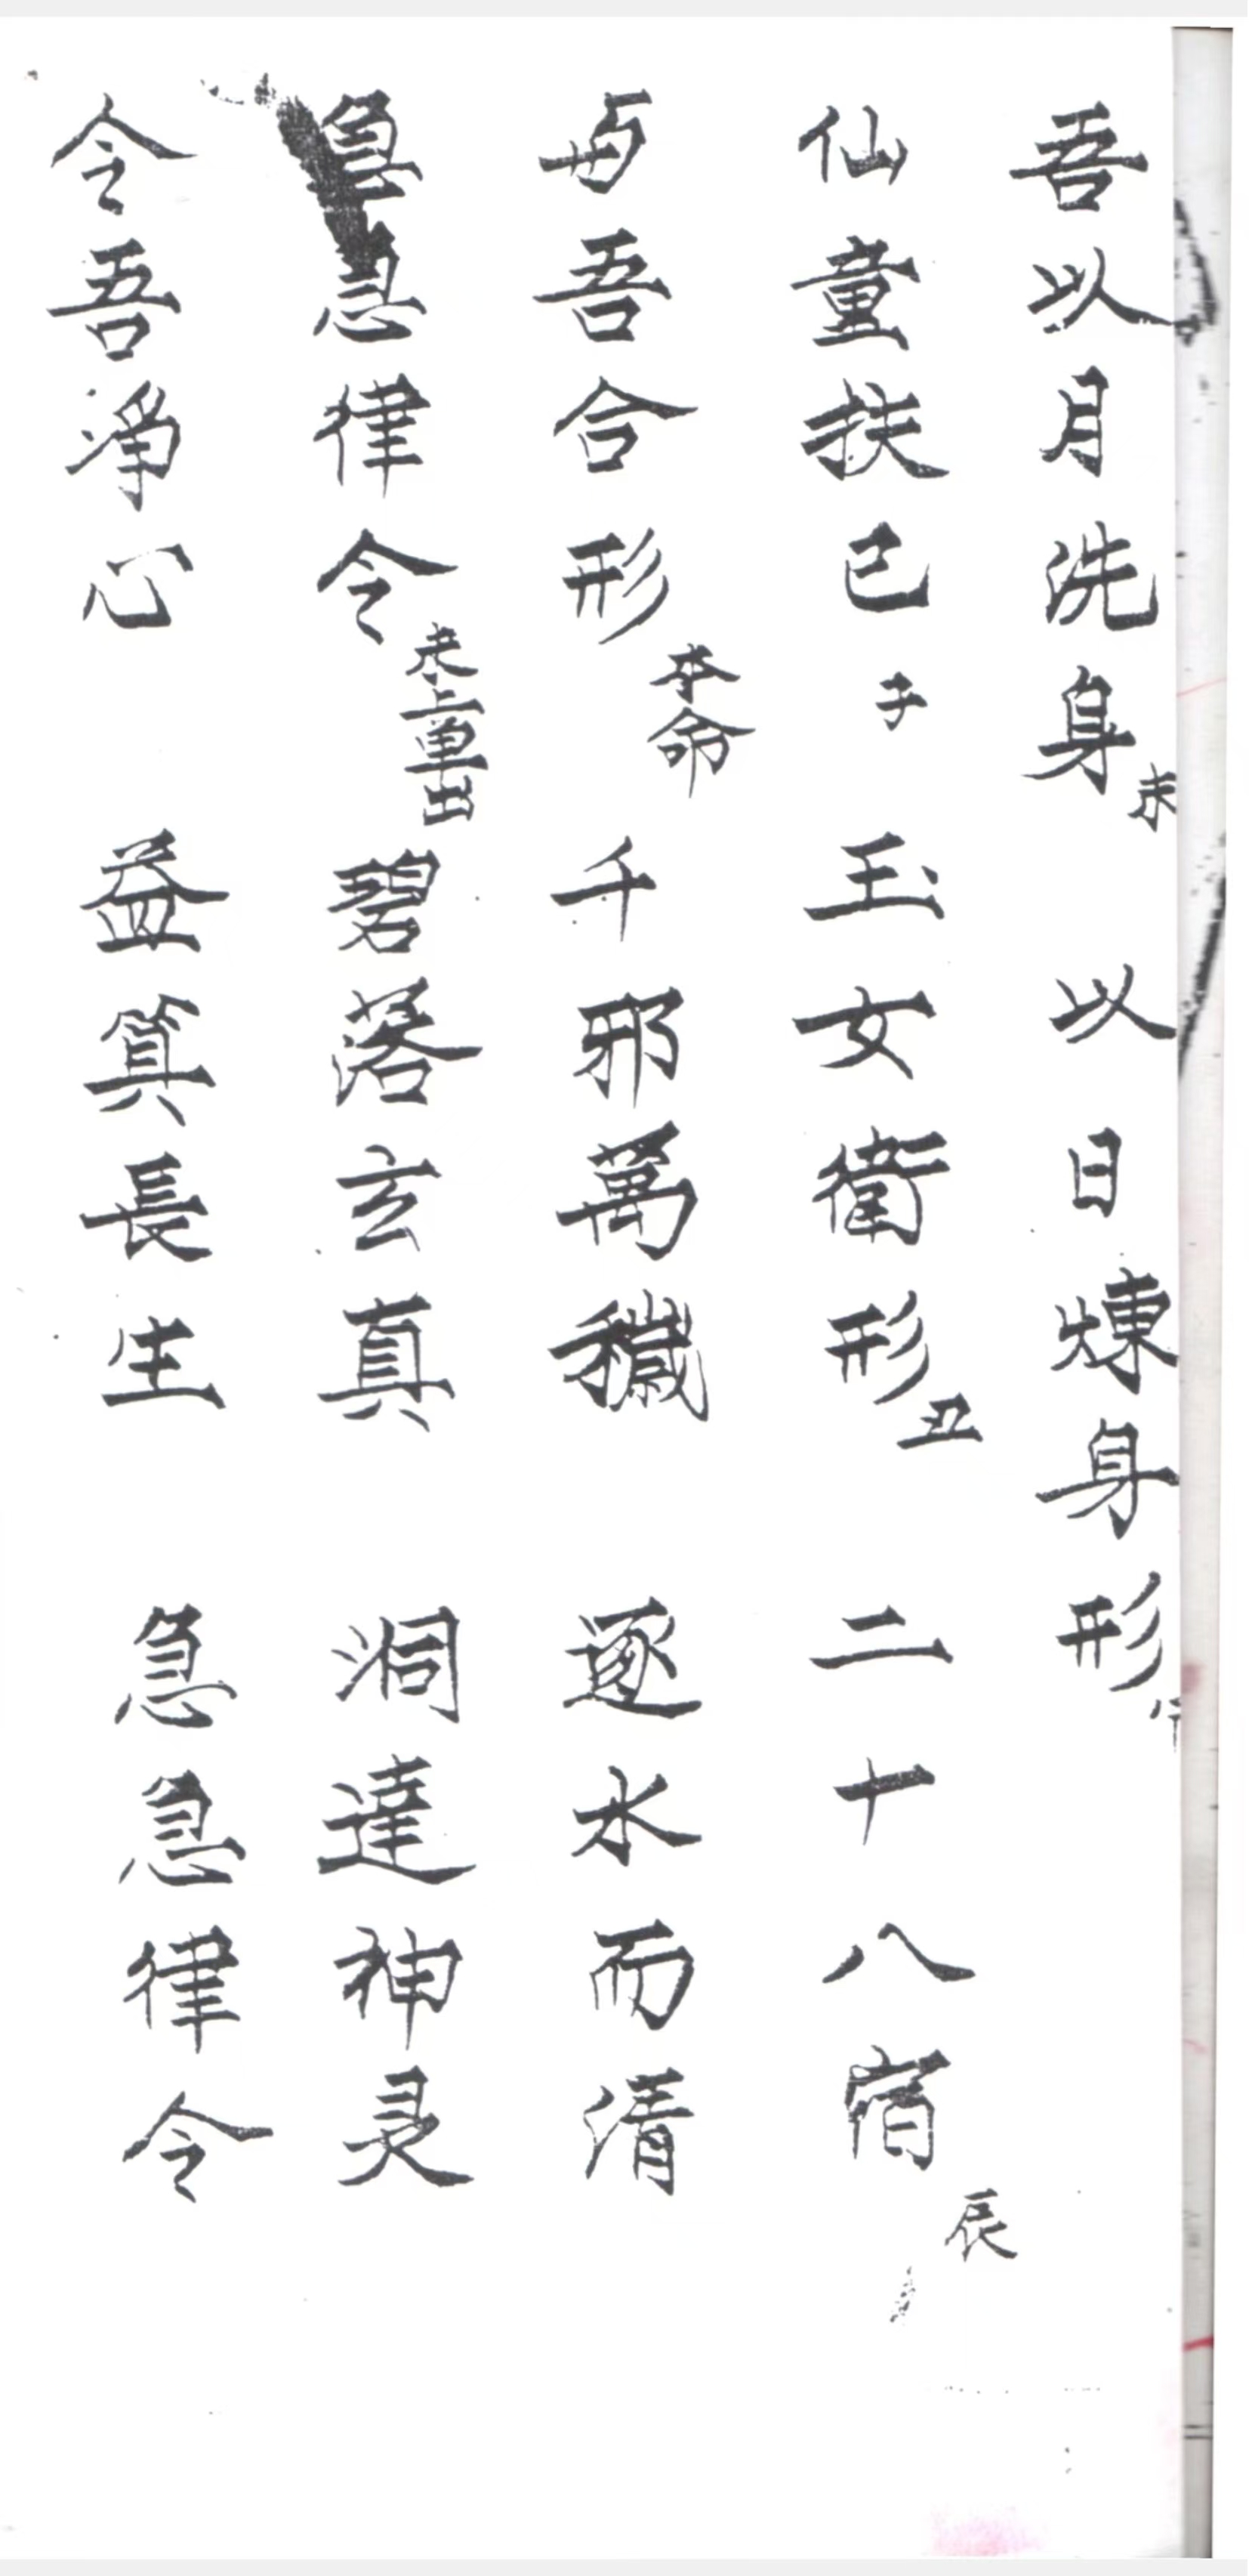 吾以月洗身未 以日煉身形
仙童扶已子 玉女衛形丑 二十八宿辰
与吾合形本命 千邪萬穢 逐水而清
急急律令 碧落玄真 洞達神灵
令吾淨心 益算長生 急急律令